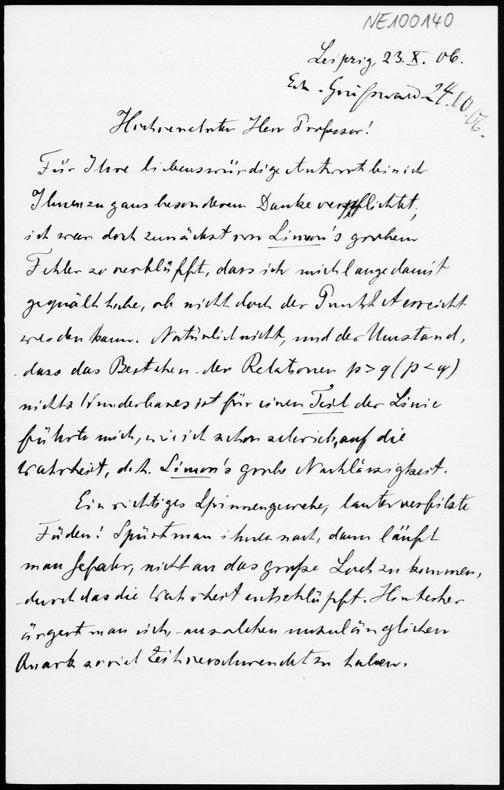 NE100140
Leipzig, 23. X. 06.
24.10.06.
Hochverehrter Herr Professor!
Für Ihre liebenswürdige Antwort bin ich
Ihnen zu ganz besonderem Danke verpflichtet;
ich war doch zunächst von Simon's grobem
Fehler so verblüfft, dass ich mich lange damit
gequält habe, ob nicht doch der Punkt A erreicht
werden kann. Natürlich nicht, und der Umstand,
dass das Bestehen der Relationen p > q (p < q)
nichts Wunderbares ist für einen Teil der Linie
führte mich, wie ich schon schrieb, auf die
Wahrheit, d.h. Simon's grobe Nachlässigkeit.
Ein richtiges Spinnengewebe, lauter verfilzte
Fäden! Spürt man ihnen nach, dann läuft
man Gefahr, nicht an das große Loch zu kommen,
durch das die Wahrheit entschlüpft. Hinterher
ärgert man sich, an solchen unzulänglichen
Quark so viel Zeit verschwendet zu haben.